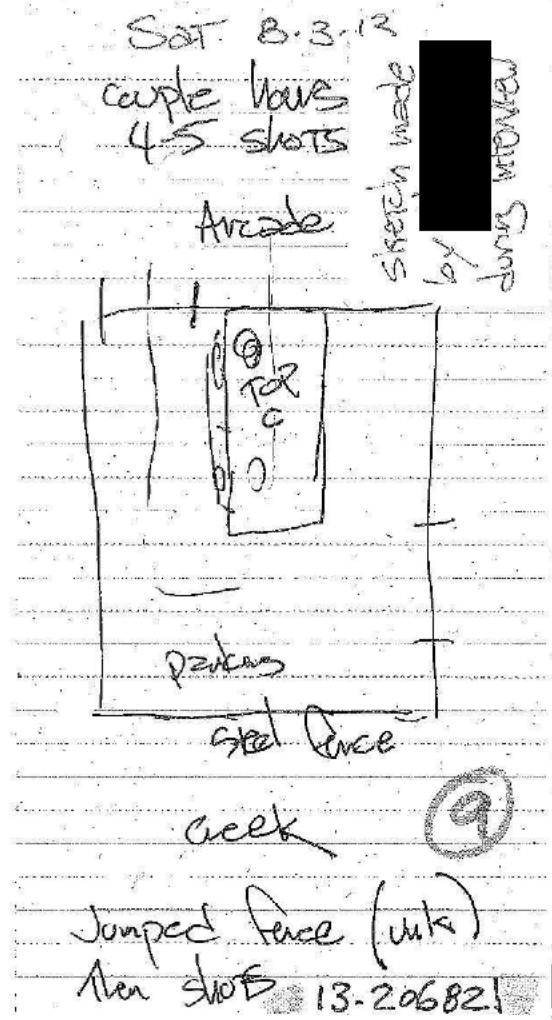 SAT 8-3-13
couple hours
4-5 shots
sketch made
by
during interview
Arcade
TOP
C
parking
steel fence
creek
9
Jumped fence (unk)
then shots
13-206821